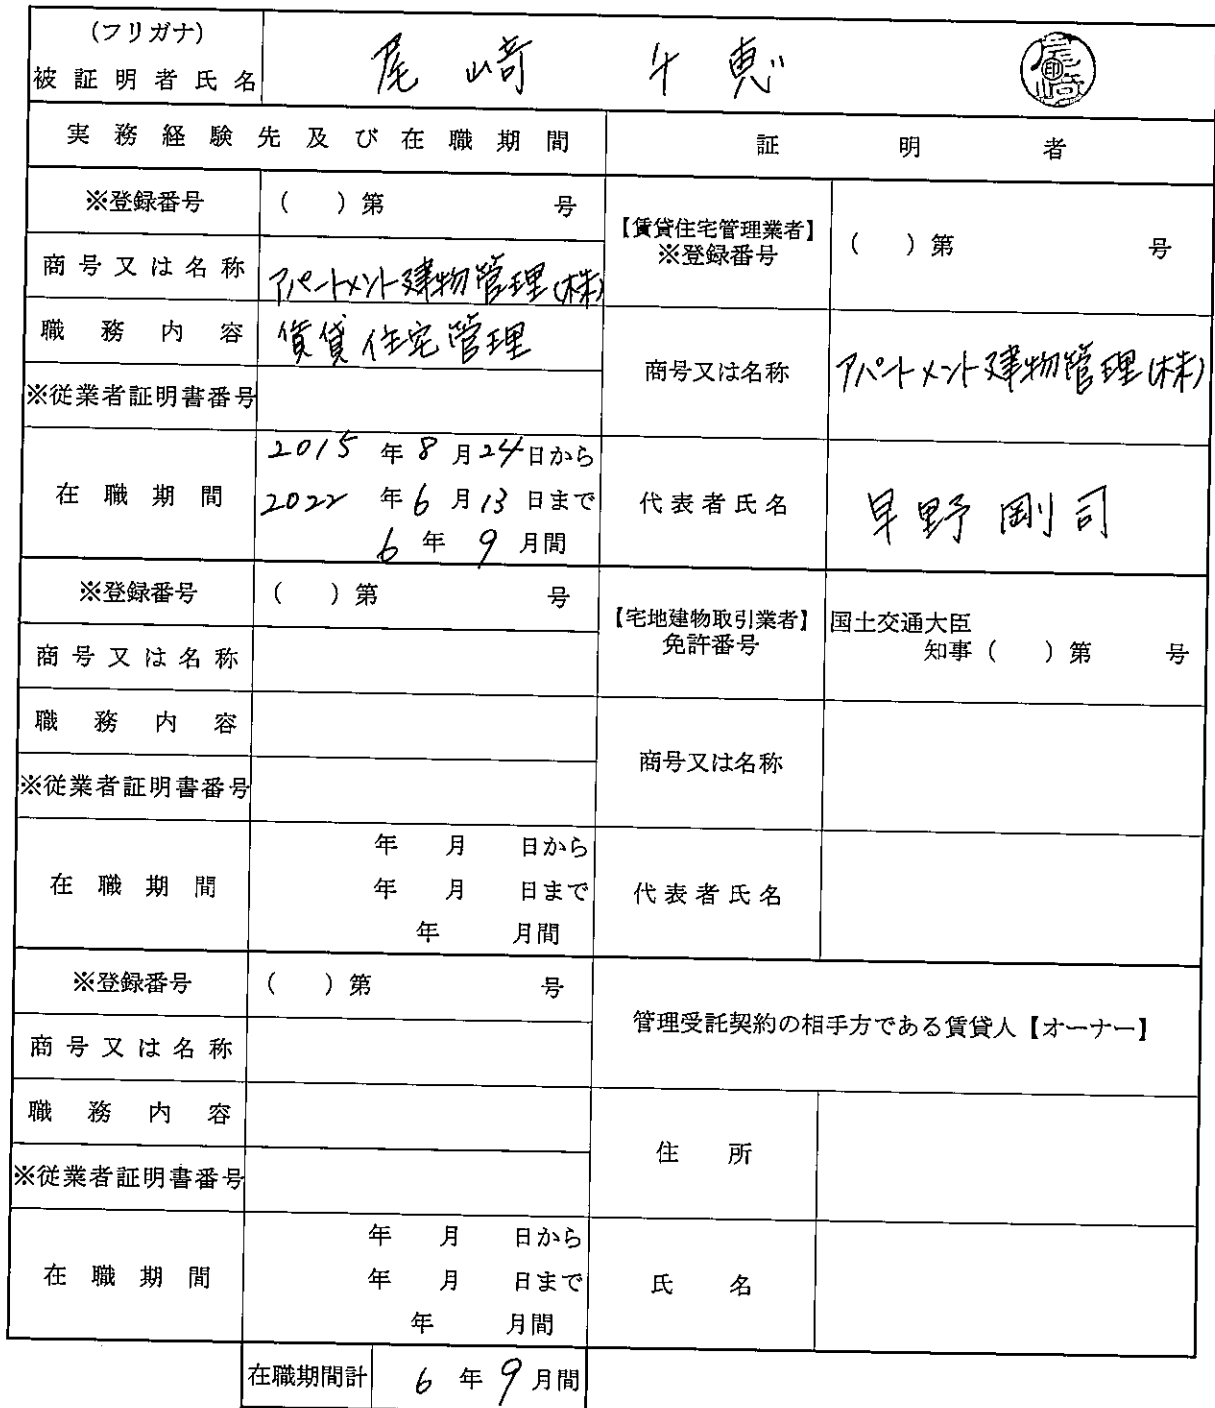 (フリガナ)
被証明者氏名 尾﨑 千恵
尾﨑 印
実務経験先及び在職期間 証明者
※登録番号 ( )第 号
【賃貸住宅管理業者】
※登録番号 ( )第 号
商号又は名称 アパートメント建物管理(株)
職務内容 賃貸住宅管理
商号又は名称 アパートメント建物管理(株)
※従業者証明書番号
在職期間
2015 年 8 月 24 日から
2022 年 6 月 13 日まで
6 年 9 月間
代表者氏名 早野 剛司
※登録番号 ( )第 号
【宅地建物取引業者】
免許番号
国土交通大臣
知事( )第 号
商号又は名称
職務内容
商号又は名称
※従業者証明書番号
在職期間
年 月 日から
年 月 日まで
年 月間
代表者氏名
※登録番号 ( )第 号
管理受託契約の相手方である賃貸人【オーナー】
商号又は名称
職務内容
住所
※従業者証明書番号
在職期間
年 月 日から
年 月 日まで
年 月間
氏名
在職期間計 6 年 9 月間